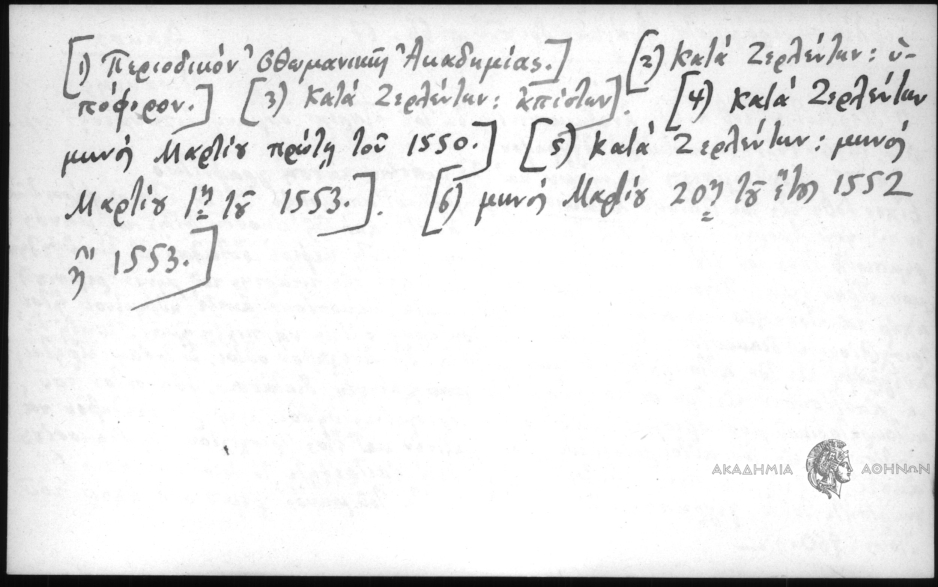 [1) Περιοδικόν Ὀθωμανικῆς Ἀκαδημίας.] [2) Κατά Ζερλέντην: ὑ-
πόφορον.] [3) Κατά Ζερλέντην: ἀπίστων]. [4) Κατά Ζερλέντην
μηνός Μαρτίου πρώτῃ τοῦ 1550.] [5) Κατά Ζερλέντην: μηνός
Μαρτίου 1ῃ τοῦ 1553.]. [6) μηνός Μαρτίου 20ῃ τοῦ ἔτους 1552
ἤ 1553.]
ΑΚΑΔΗΜΙΑ ΑΘΗΝΩΝ